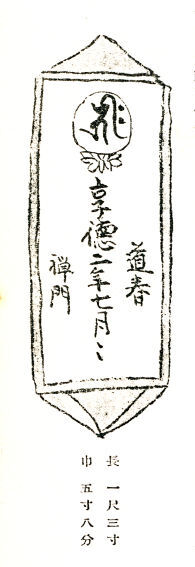 道春
享徳二年七月〻
禅門
長 一尺三寸
巾 五寸八分